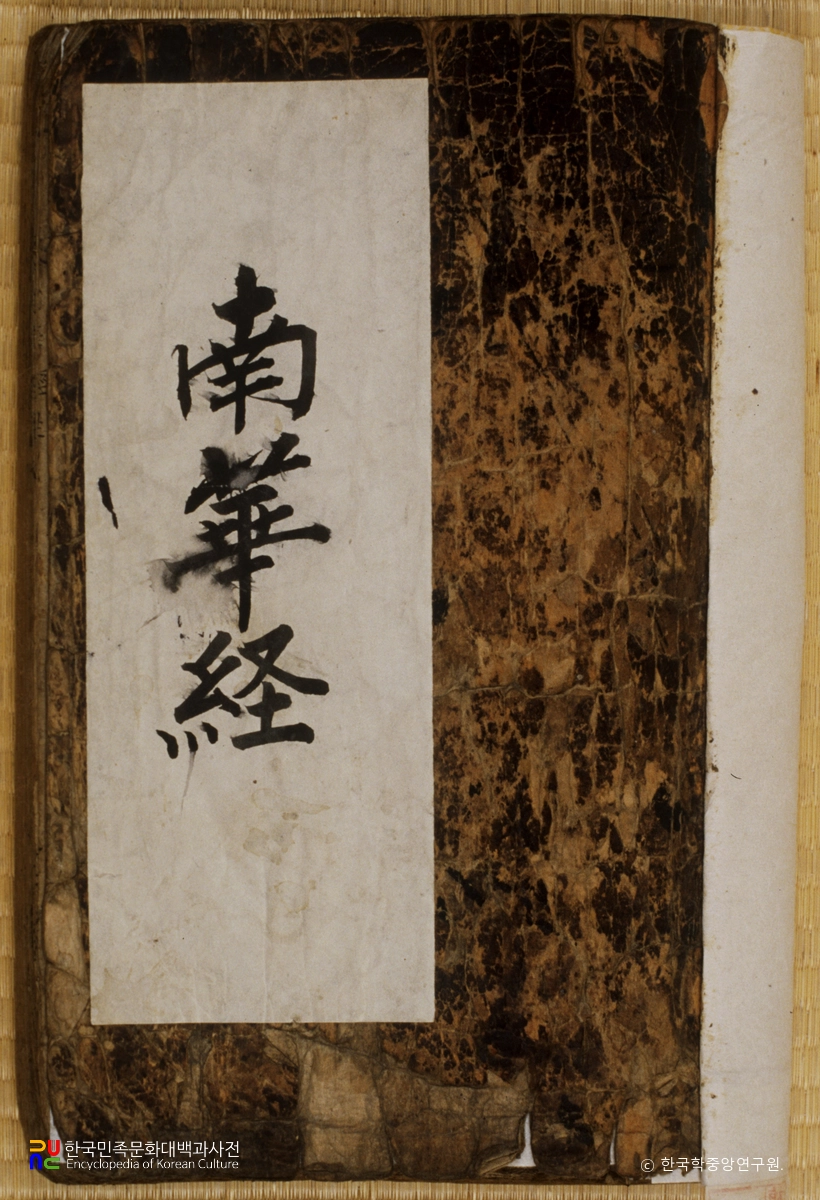 南華経
한국민족문화대백과사전
Encyclopedia of Korean Culture
© 한국학중앙연구원